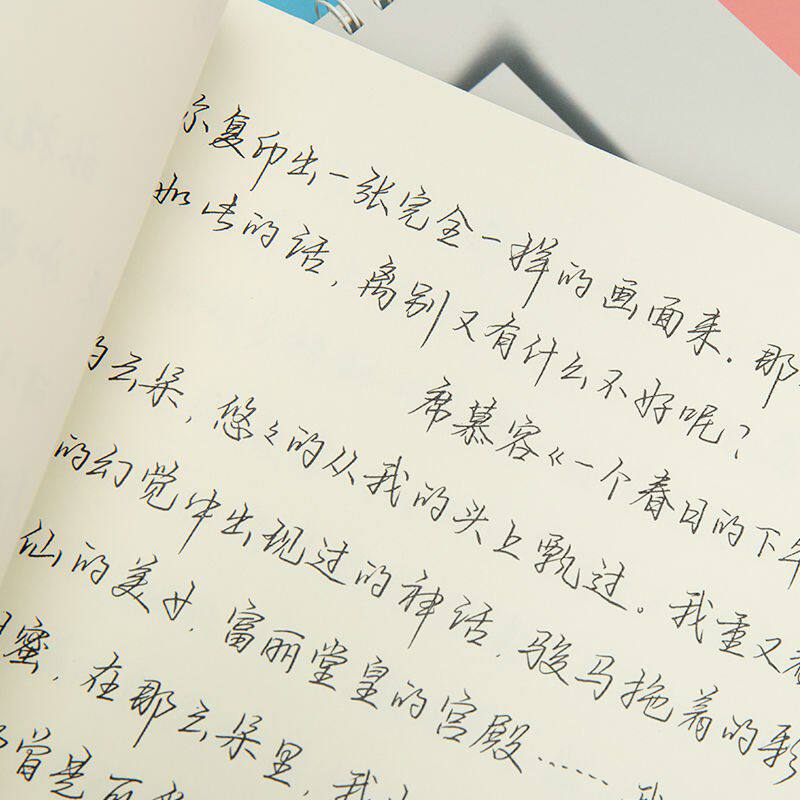 尔复印出一张完全一样的画面来.那
如生的话,离别又有什么不好呢?
席慕容《一个春日的下午
的云朵,悠々的从我的头上飘过。我重又看
的幻觉中出现过的神话.骏马拖着的彩
仙的美女.富丽堂皇的宫殿……我
蜜,在那云朵里,我
曾是